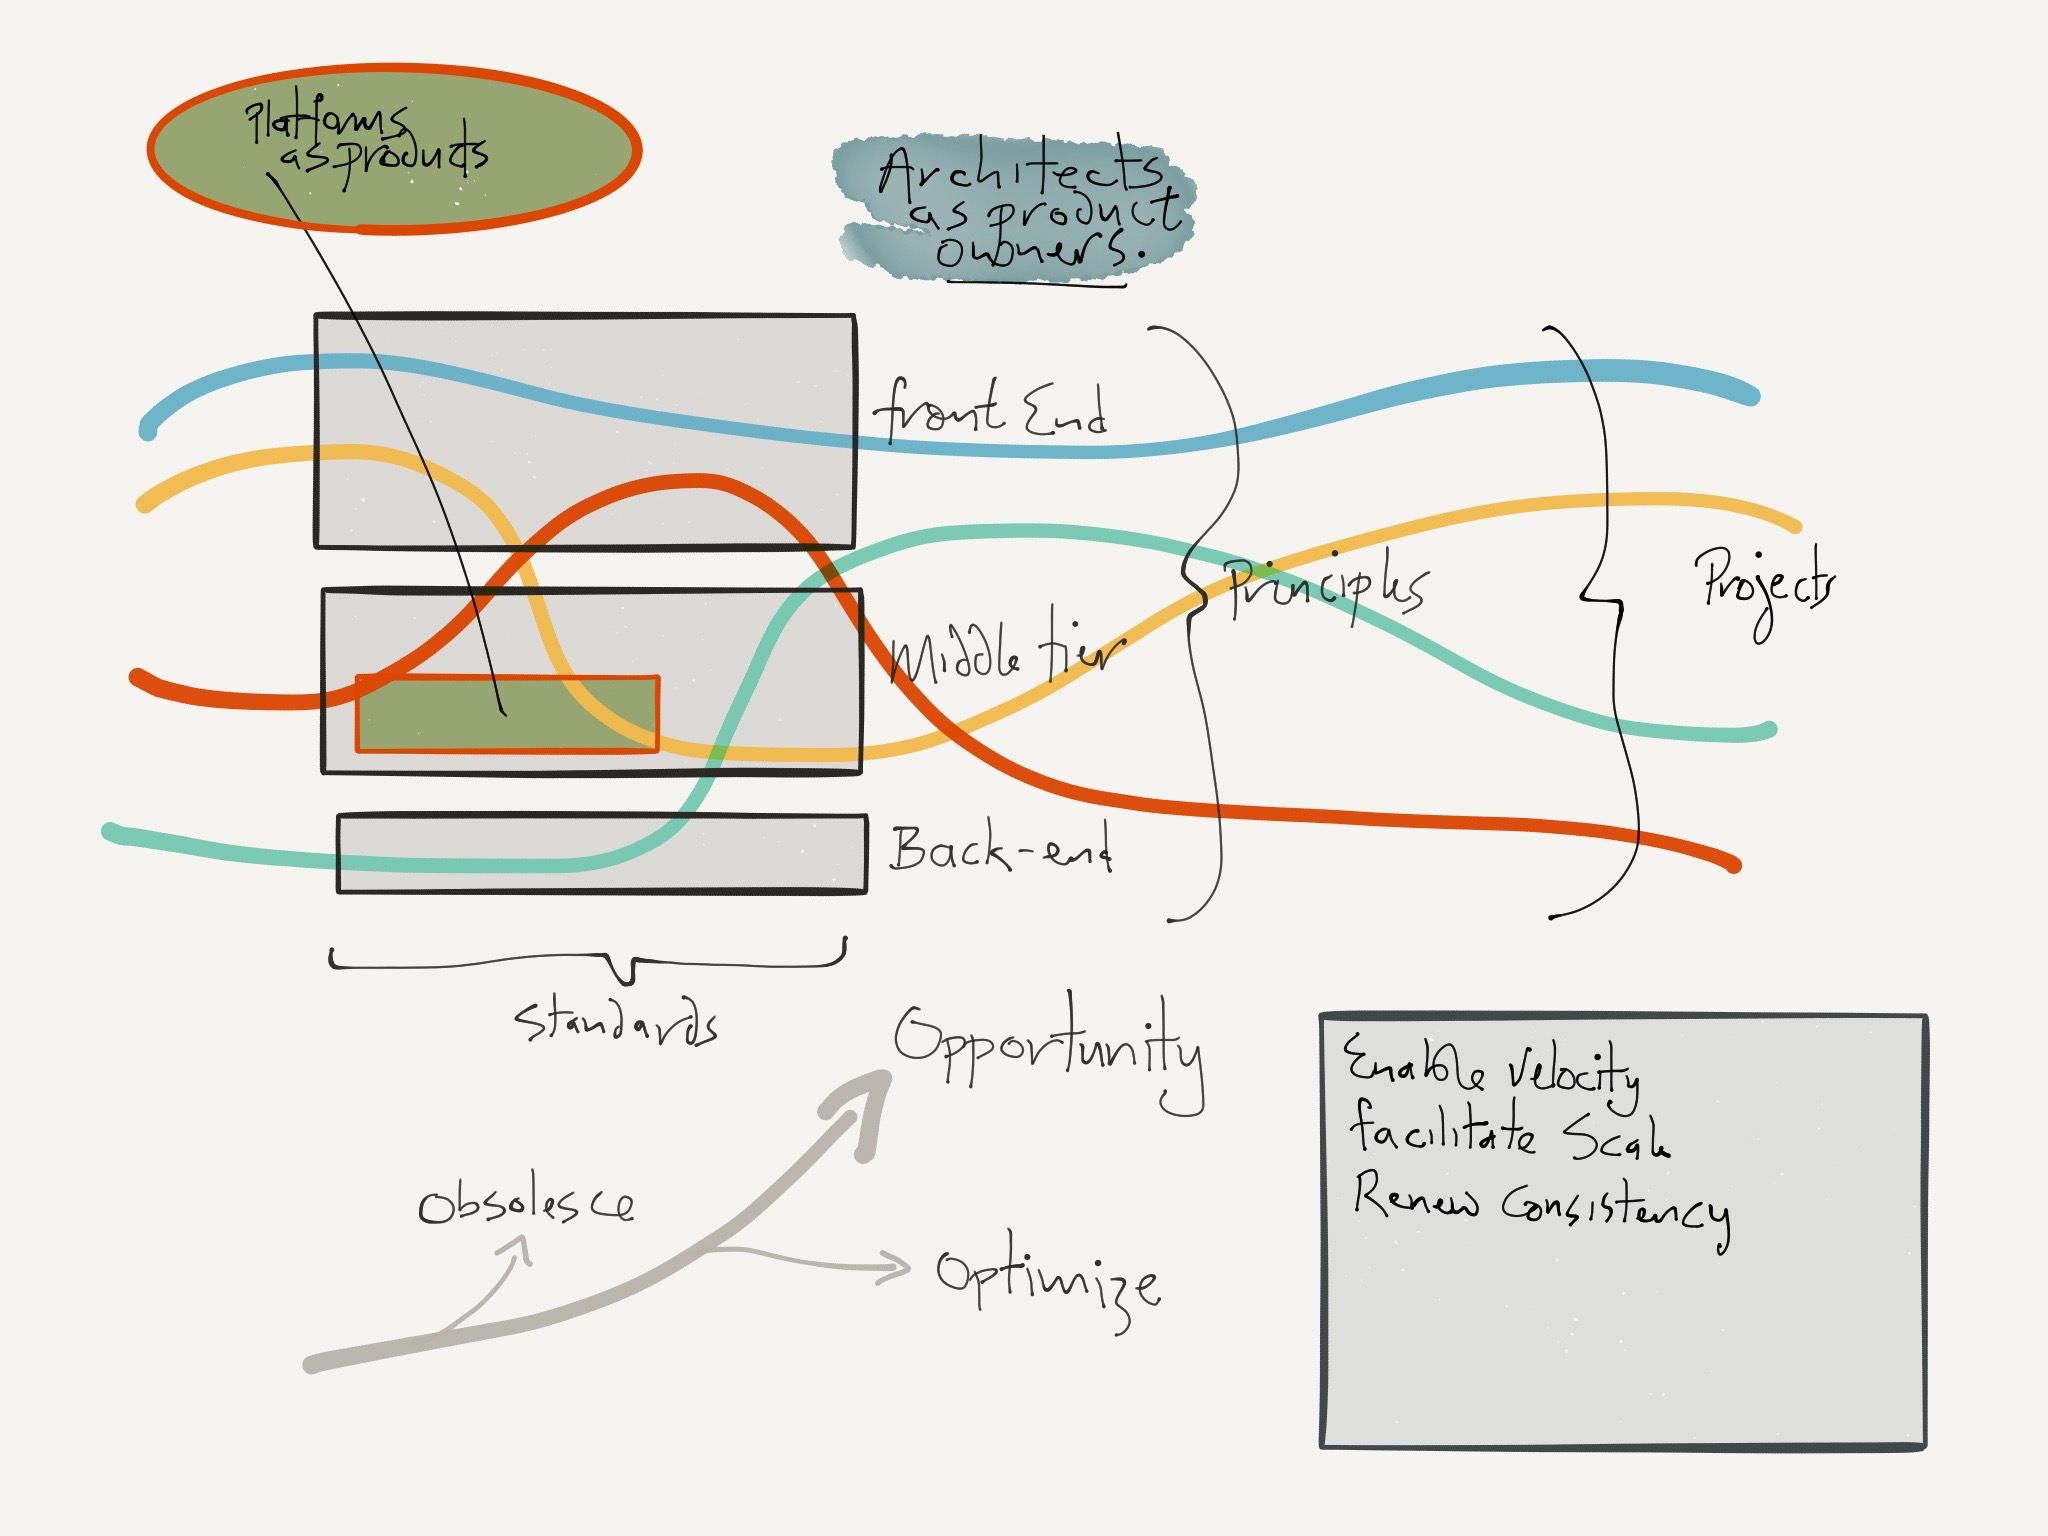 Platforms
as products
Architects
as product
owners.
front End
Principles
Projects
Middle tier
Back-end
Standards
Opportunity
Obsolesce
Optimize
Enable Velocity
facilitate Scale
Renew Consistency